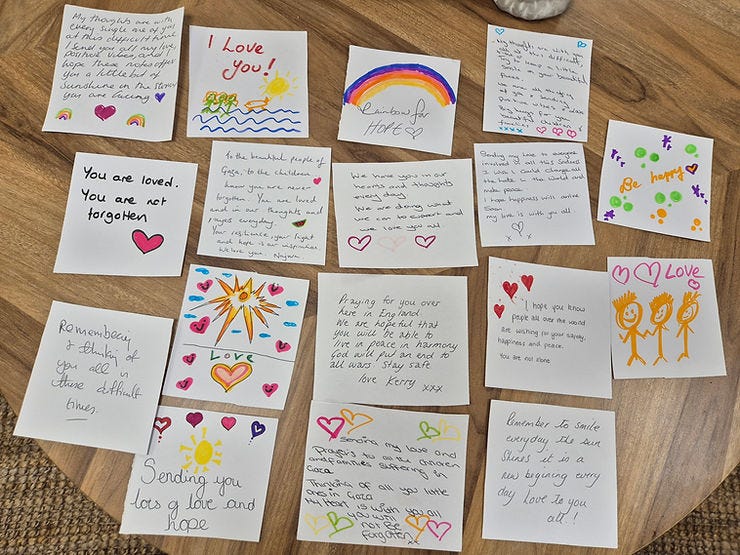 My thoughts are with
every single one of you
at this difficult time
I send you all my love,
positive vibes, and I
hope these notes offer
you a little bit of
Sunshine in the storm
you are facing
I Love
you!
Rainbows for
HOPE
My thoughts are with you
all at this difficult
Try to keep a little
Smile on your beautiful
faces
you sending
positive vibes
for you
families children
xxxx
Be happy
You are loved.
You are not
forgotten
To the beautiful people of
Gaza, to the children
know you are never
forgotten. You are loved
and in our thoughts and
prayers everyday.
Your resilience, your light
and hope is our inspiration.
We love you
We have you in our
hearts and thoughts
every day.
We are doing what
we can to support and
we love you all
Sending my love to everyone
involved in all this Sadness
I wish I could change all
the hate in the world and
make peace
I hope happiness will arrive
Soon
my love is with you all
x x
Love
Love
Praying for you over
here in England.
We are hopeful that
you will be able to
live in peace in harmony
God will put an end to
all wars. Stay safe
love Kerry xxx
I hope you know
people all over the world
are wishing for your safety,
happiness and peace.
You are not alone
Remembering
& thinking of
you all in
these difficult
times.
Sending you
lots of love and
hope
Sending my love and
Prayers to all the children
and families suffering in
Gaza
Thinking of all you little
ones in Gaza
My Heart is with you all
you will
not be
forgotten xx
Remember to smile
everyday, the sun
Shines it is a
new begining every
day Love to you
all..!